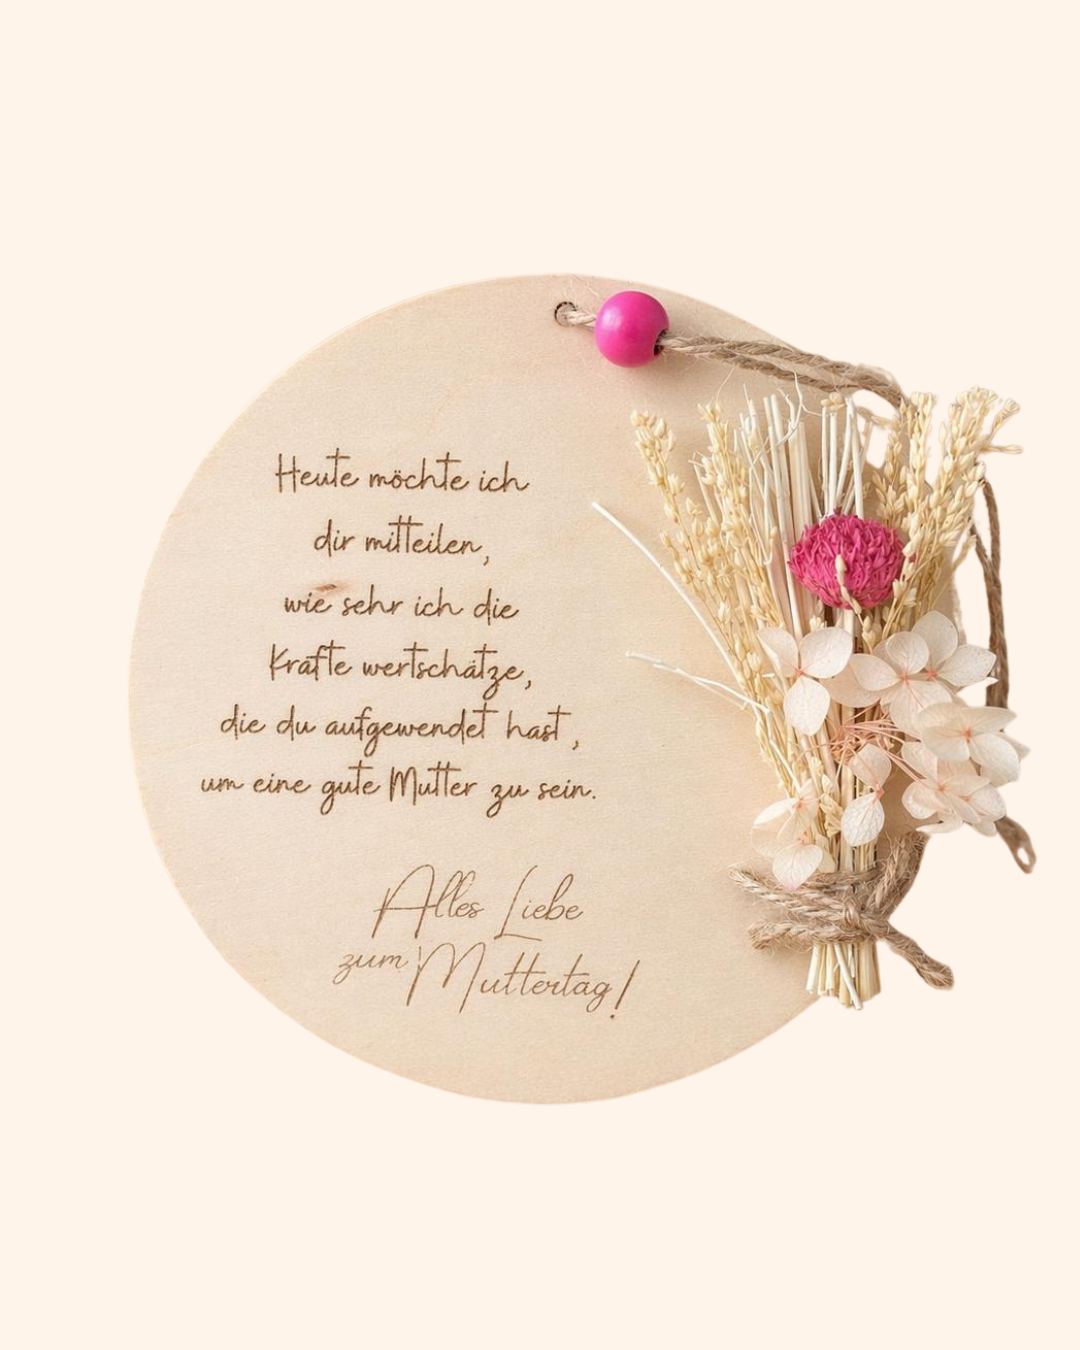 Heute möchte ich
dir mitteilen,
wie sehr ich die
Kräfte wertschätze,
die du aufgewendet hast,
um eine gute Mutter zu sein.
Alles Liebe
zum Muttertag!